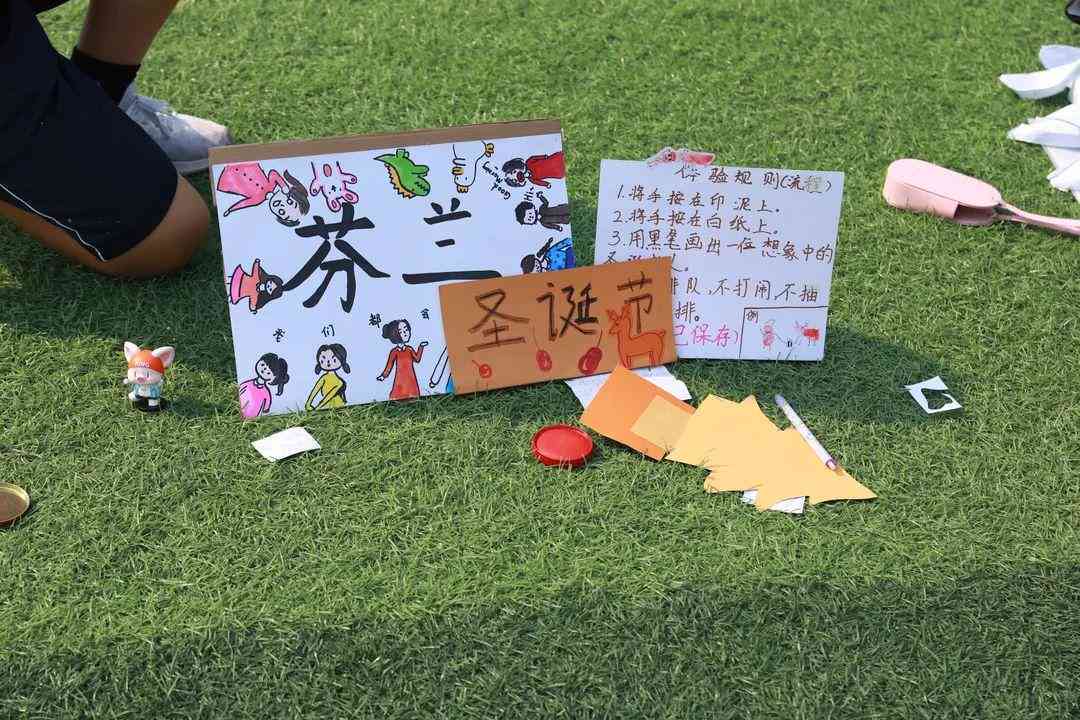 芬兰
我们都
圣诞节
体验规则(流程)
1.将手按在印泥上。
2.将手按在白纸上。
3.用黑笔画出一位想象中的
圣
人。
排队,不打闹,不抽
排。
己保存)
例